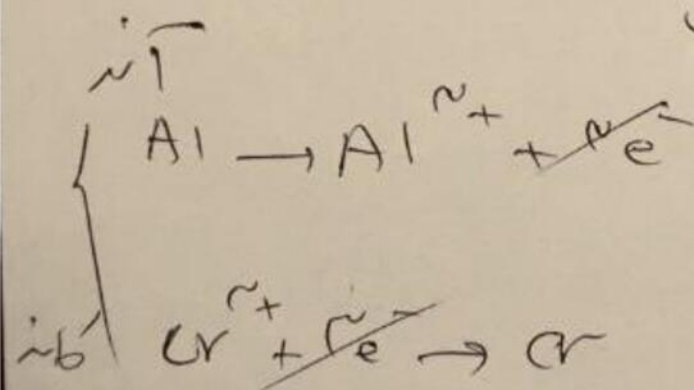 آند
Al → Al³⁺ + ۳e⁻
کاتد
Cr³⁺ + ۳e⁻ → Cr